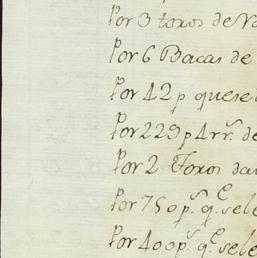 Por 3 toros de Va
Por 6 Bacas de
Por 42 p. quese
Por 229 p 4 rr.s de
Por 2 Toros da
Por 750 p.s q.e sele
Por 400 p.s q.e sele